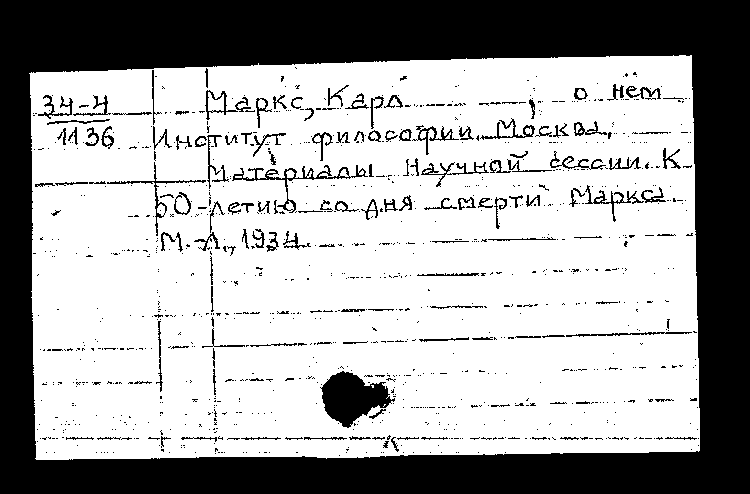 34-4 Маркс, Карл, о нём
1136 Институт философии. Москва.
Материалы научной сессии. К
50-летию со дня смерти Маркса.
М.-Л., 1934